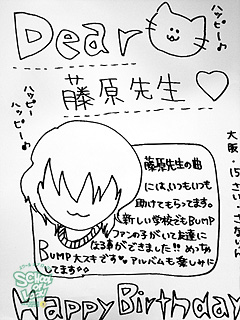 Dear
ハッピー♪
藤原先生♡
ハッピー
ハッピー♪
大阪・15さい・さないん
藤原先生の曲
には、いつもいつも
助けてもらってます。
新しい学校でもBUMP
ファンの子がいて友達に
なる事ができました!! めっちゃ
BUMP大スキです アルバムも楽しみに
してます
SCHOOL OF LOCK!
Happy Birthday